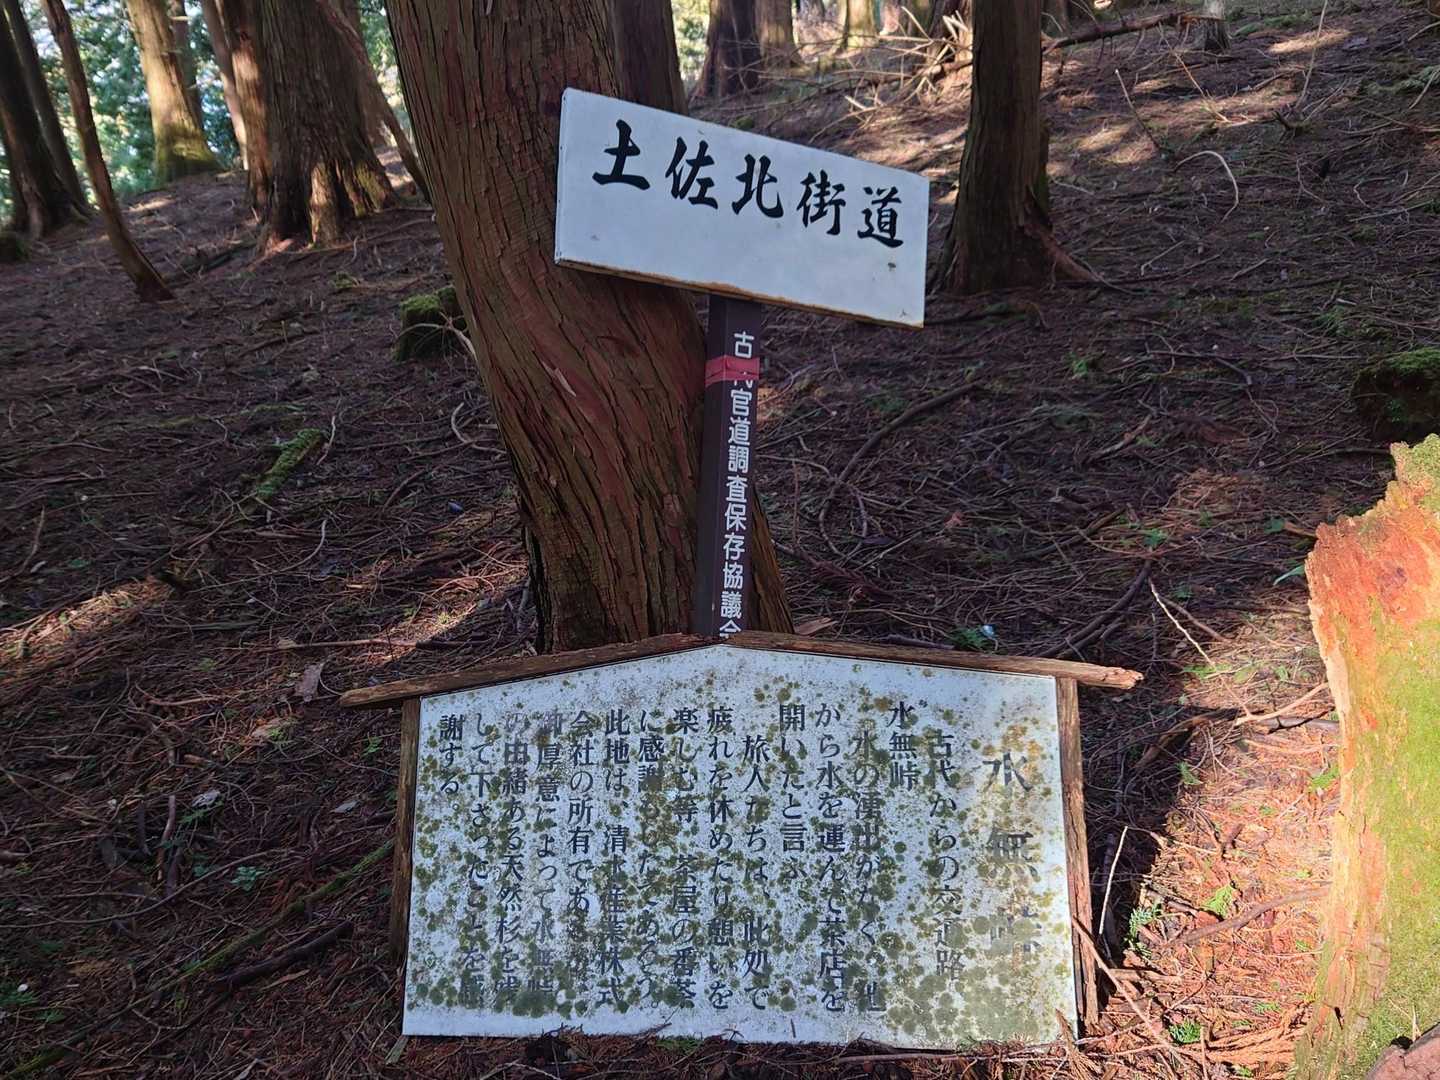 土佐北街道
古代官道調査保存協議会
水無峠
古代からの交通路
水無峠
水の湧出がなく、他
から水を運んで茶店を
開いたと言ふ、
旅人たちは、此処で
疲れを休めたり憩いを
楽しむ等、茶屋の番茶
に感謝もしたであろう。
此地は、清水産業株式
会社の所有であ
御厚意によって水無峠
の由緒ある天然杉を残
して下さったことを感
謝する。